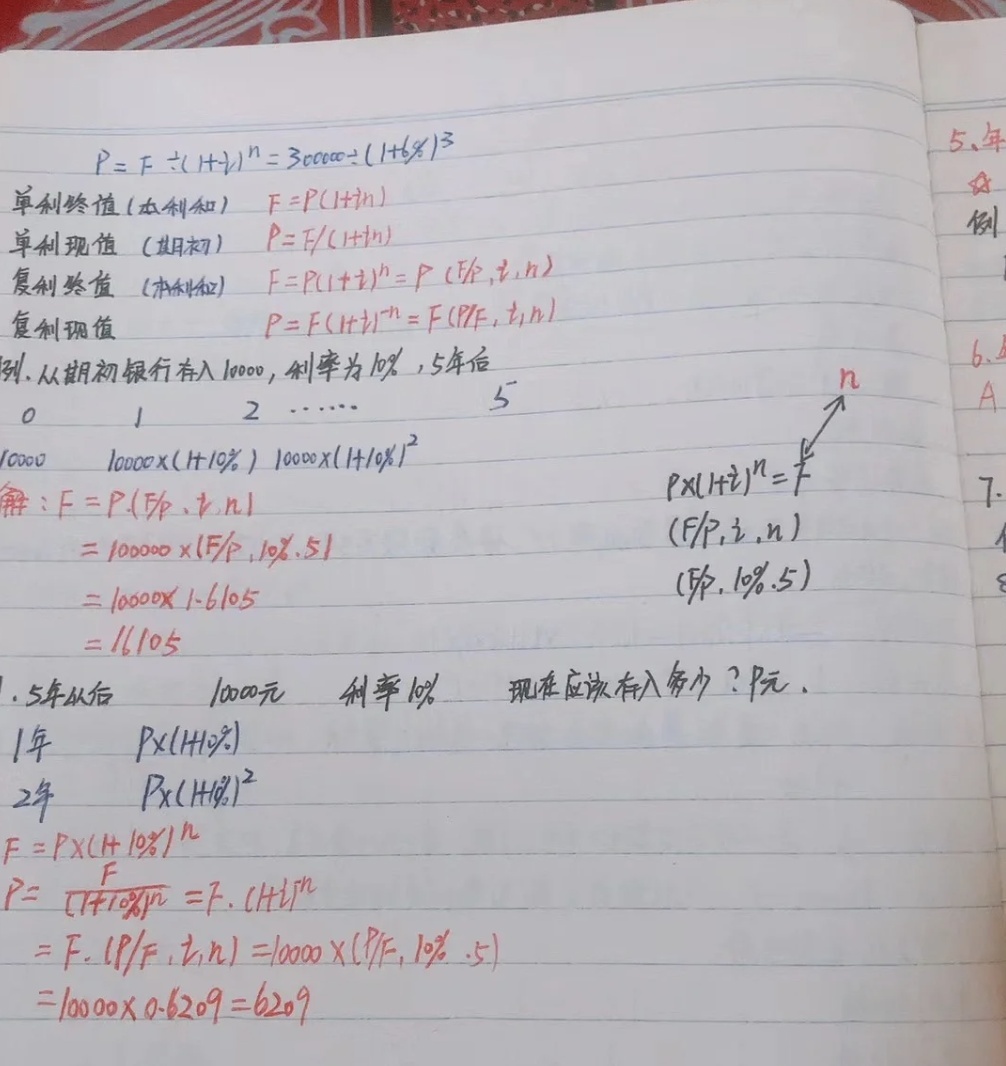 P = F ÷(1+i)ⁿ = 300000÷(1+6%)³
单利终值(本利和) F=P(1+in)
单利现值 (期初) P=F/(1+in)
复利终值 (本利和) F=P(1+i)ⁿ= P (F/P, i, n)
复利现值 P=F(1+i)⁻ⁿ=F(P/F, i, n)
例.从期初银行存入10000, 利率为10%, 5年后
0 1 2 ······ 5
10000 10000×(1+10%) 10000×(1+10%)²
解: F = P.(F/P、i, n)
= 100000×(F/P, 10%.5)
= 10000× 1.6105
= 16105
n
P×(1+i)ⁿ=F
(F/P, i, n)
(F/P, 10%.5)
.5年以后 10000元 利率10% 现在应该存入多少?P元.
1年 P×(1+10%)
2年 P×(1+10%)²
F = P×(1+10%)ⁿ
P= F/(1+10%)ⁿ = F. (1+i)⁻ⁿ
= F. (P/F, i, n) =10000×(P/F, 10% .5)
=10000×0.6209=6209
5、年
☆
例
6.
A
7.